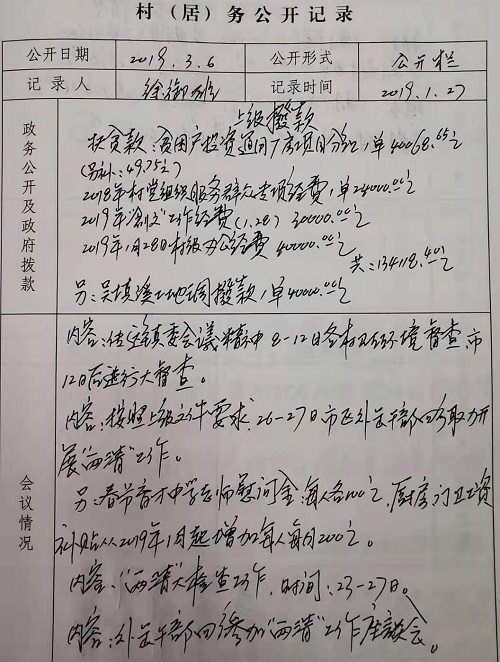 村（居）务公开记录
公开日期 2019.3.6 公开形式 公开栏
记录人 徐 记录时间 2019.1.27
政务公开及政府拨款
上级拨款
扶贫款：贫困户投资通用厂房项目分红，1单40068.65元
（另补：49.75元）
2018年村党组织服务群众专项经费，1单24000.00元
2019年"创文"工作经费（1.28）30000.00元
2019年1月28日村级办公经费 40000.00元
共：134118.40元
另：吴填溪工地调拨款，1单40000.00元
会议情况
内容：传达镇委会议精神 8-12日各村环境督查，市
12日后进行大督查。
内容：按照上级文件要求，26-27日市区外出干部回乡取力开
展"两清"工作。
另：春节育才中学老师慰问金：每人各100元，厨房、门卫工资
补贴从2019年1月起增加每人每月200元。
内容："两清"大检查工作，时间：23-27日。
内容：外出干部回乡参加"两清"工作座谈会。